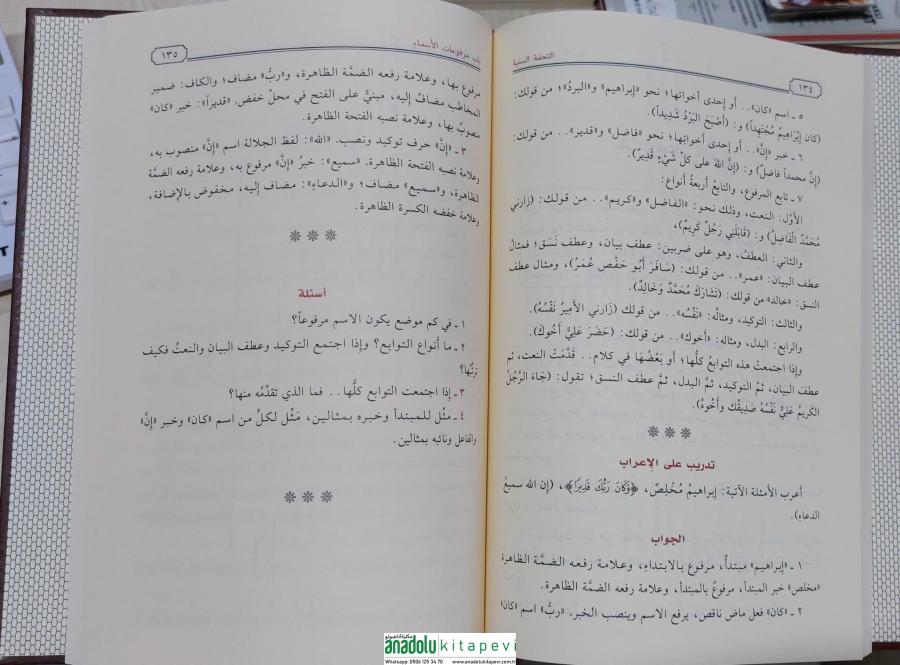 ١٣٤
التحفة السنية
٥ ـ اسم «كان».. أو إحدى أخواتها؛ نحو «إبراهيم» و«البرد»؛ من قولك:
(كان إبراهيمُ مُجْتَهِداً) و: (أَصْبَحَ البَرْدُ شَدِيداً).
٦ ـ خبر «إنَّ».. أو إحدى أخواتها؛ نحو «فاضل» و«قدير».. من قولك:
(إنَّ محمداً فاضلٌ) و: (إنَّ اللهَ على كلِّ شَيْءٍ قَدِيرٌ).
٧ ـ تابع المرفوع، والتابعُ أربعةُ أنواع:
الأوَّل: النعت، وذلك نحو: «الفاضل» و«كريم».. من قولك: (زارني
مُحَمَّدٌ الْفَاضِلُ) و: (قَابَلَنِي رَجُلٌ كَرِيمٌ)،
والثاني: العطف، وهو على ضربين: عطف بيان، وعطف نَسَق؛ فمثالُ
عطف البيان: «عمر».. من قولك: (سَافَرَ أَبُو حَفْصٍ عُمَرُ)، ومثال عطف
النسق: «خالد» من قولك: (تَشَارَكَ مُحَمَّدٌ وَخَالِدٌ).
والثالث: التوكيد، ومثالُه: «نَفْسُه».. من قولك (زارني الأَمِيرُ نَفْسُهُ).
والرابع: البدل، ومثاله: «أخوك».. من قولك: (حَضَرَ عَلِيٌّ أَخُوكَ).
وإذا اجتمعتْ هذه التوابعُ كلُّها؛ أو بَعْضُهَا في كلام.. قَدَّمْتَ النعت، ثم
عطف البيان، ثمَّ التوكيد، ثمَّ البدل، ثمَّ عطف النسق؛ تقول: (جَاءَ الرَّجُلُ
الكَرِيمُ عَلِيٌّ نَفْسُهُ صَدِيقُك وأَخُوهُ).
تدريب على الإعراب
أعرب الأمثلة الآتية: إبراهيمُ مُخْلِصٌ، ﴿وَكَانَ رَبُّكَ قَدِيرًا﴾، (إن الله سميعُ
الدعاءِ).
الجواب
١ ـ «إبراهيم» مبتدأ، مرفوع بالابتداء، وعلامة رفعه الضمَّة الظاهرة
«مخلص» خبر المبتدأ، مرفوعٌ بالمبتدأ، وعلامة رفعه الضمَّة الظاهرة.
٢ ـ «كان» فعل ماض ناقص، يرفع الاسم وينصب الخبر. «ربُّ» اسم «كان»
باب مرفوعات الأسماء
١٣٥
مرفوع بها، وعلامة رفعه الضمَّة الظاهرة، و«ربُّ» مضاف؛ والكاف: ضمير
المخاطب مضافٌ إليه، مبنيٌّ على الفتح في محلِّ خفض. «قديراً»: خبر «كان»
منصوبٌ بها، وعلامة نصبه الفتحة الظاهرة.
٣ ـ «إنَّ» حرف توكيد ونصب. «الله»: لفظ الجلالة اسم «إنَّ» منصوب به،
وعلامة نصبه الفتحة الظاهرة. «سميع»: خبرُ «إنَّ» مرفوع به، وعلامة رفعه الضمَّة
الظاهرة، و«سميع» مضاف؛ و«الدعاءِ»: مضاف إليه، مخفوض بالإضافة،
وعلامة خفضه الكسرة الظاهرة.
أسئلة
١ ـ في كم موضع يكون الاسم مرفوعاً؟
٢ ـ ما أنواع التوابع؟ وإذا اجتمع التوكيد وعطف البيان والنعتُ فكيف
رَتِّبها؟
٣ ـ إذا اجتمعت التوابع كلُّها.. فما الذي تقدِّمُه منها؟
٤ ـ مثِّل للمبتدأ وخبره بمثالين، مَثِّل لكلٍّ من اسم «كانَ» وخبر «إنَّ»
والفاعل ونائبه بمثالين.
anadolu kitapevi
Whatsapp: 0506 125 34 70 www.anadolukitapevi.com.tr